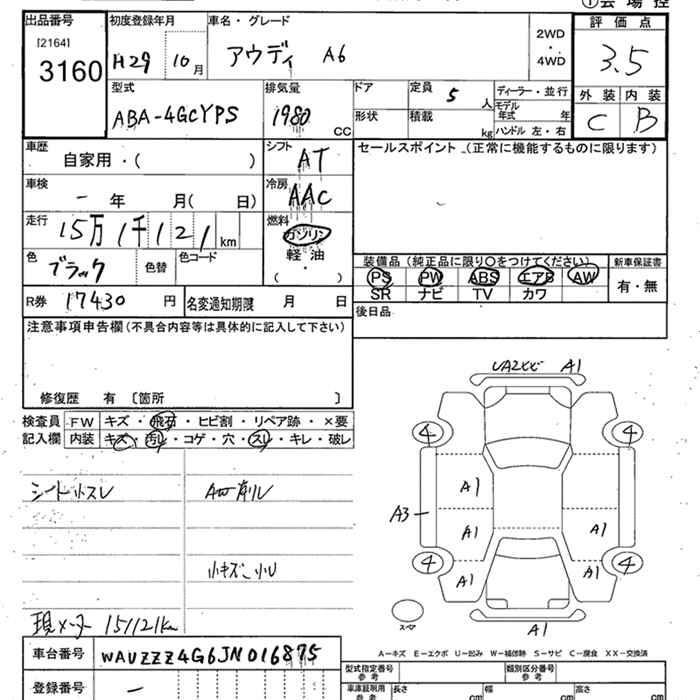 ①会場控
出品番号
[2164]
3160
初度登録年月
H29 10月
車名・グレード
アウディ A6
2WD
・
4WD
評価点
3.5
外装 内装
C B
型式
ABA-4GCYPS
排気量
1980 CC
ドア
形状
定員 5 人
積載 kg
ディーラー・並行
モデル年式 年
ハンドル 左・右
車歴
自家用・( )
シフト
AT
セールスポイント (正常に機能するものに限ります)
車検
- 年 月( 日)
冷房
AAC
走行
15万1千121km
燃料
ガソリン
軽・油
( )
色
ブラック
色替
色コード
装備品 (純正品に限り○をつけてください)
PS PW ABS エアB AW
SR ナビ TV カワ
新車保証書
有・無
R券 17430 円
名変通知期限 月 日
後日品
注意事項申告欄(不具合内容等は具体的に記入して下さい)
修復歴 有 〔箇所 〕
検査員記入欄
FW キズ・飛石・ヒビ割・リペア跡・×要
内装 キズ・汚レ・コゲ・穴・スレ・キレ・破レ
シート小スレ
AW削レ
小キズ小U
現メーター 151121km
UA2ヒビ A1
4 4
A1
A3
A1 A1
4 4
A1 A1
スペア
A1
A-キズ E-エクボ U-凹み W-補修跡 S-サビ C-腐食 XX-交換済
車台番号 WAUZZZ4G6JN016875
登録番号 -
型式指定番号
参考
類別区分番号
参考
車庫証明用
参考
長さ cm 幅 cm 高さ cm